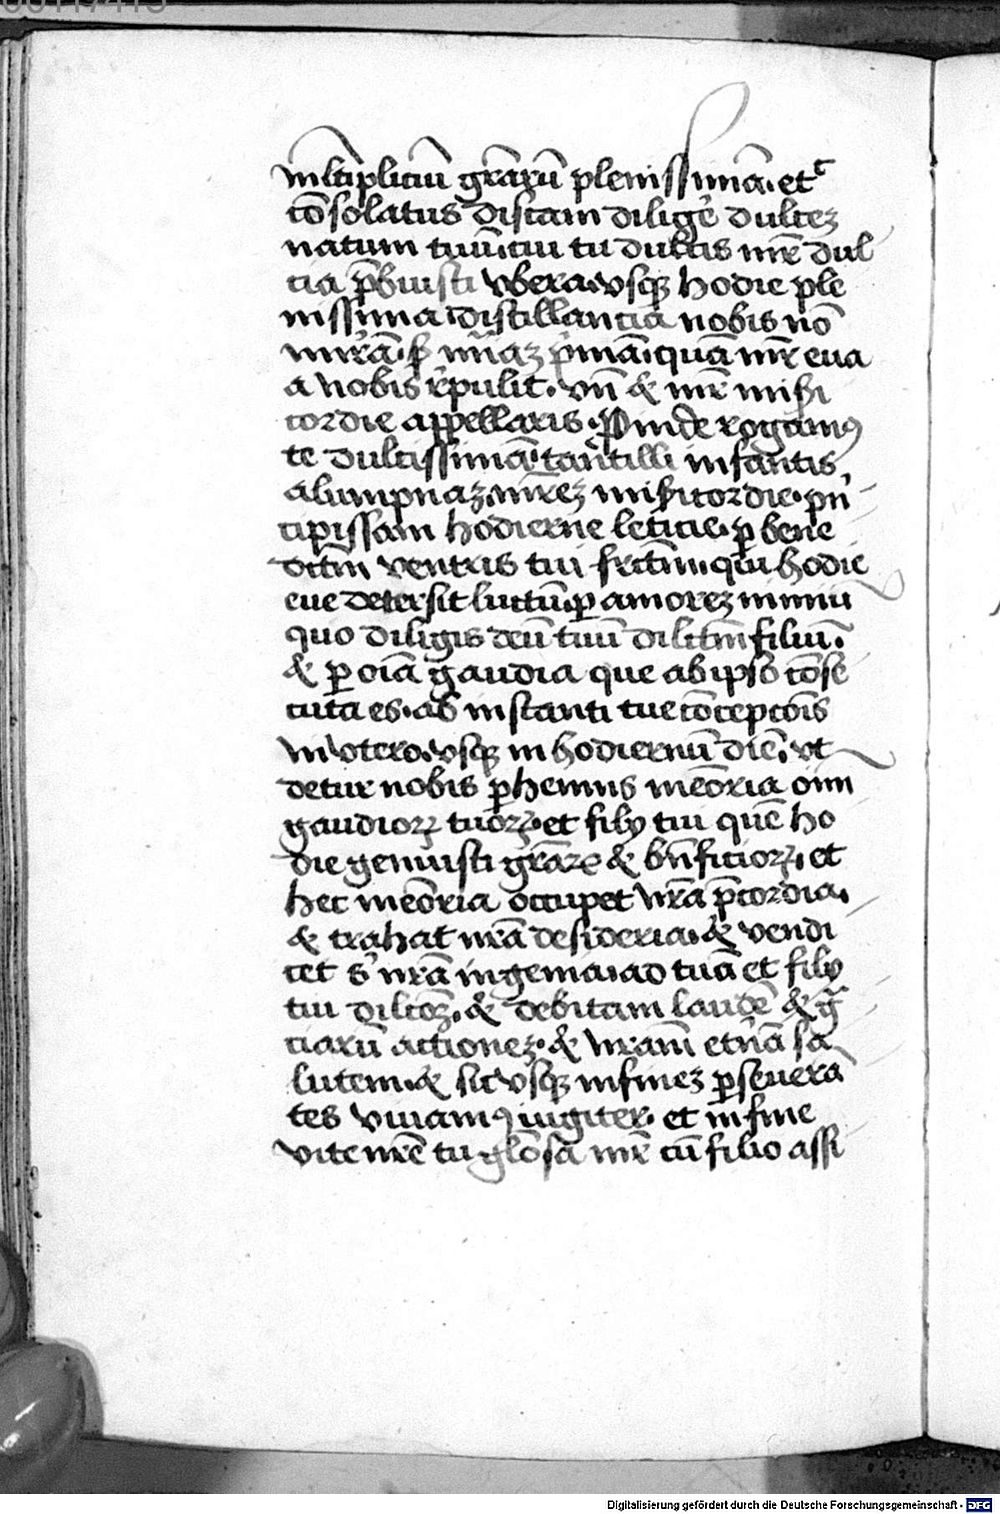 mltipliciū gr̄arū plenissimā. etᶜ
cōsolatus discam diligē dulcez
natum tuū. cui tu dulcis mr̄e dul
cia p̄buisti vbera. vsqꝫ hodie ple
nissima distillancia nobis nō
mirrā. sꝫ
a nobis r̄pulit. vn̄ & mr̄e mis̄i
cordie appellaris. Proinde rogamꝰ
te dulcissimā. infantis
mis̄icordie. pn̄
cipissam hodierne leticie. ꝑ bene
dictm̄ ventris tui fructm̄. qui hodie
eue detersit luctū. ꝑ amorez nimiū
quo diligis deū tuū dilc̄tm̄ filiū.
& ꝑ oīa gaudia que ab ipso cōse
cuta es. ab instanti tue cōcepcōis
in vtero. vsqꝫ in hodiernū diē. vt
detur nobis ꝑhennis memōria oīm
gaudioꝝ tuoꝝ. et filij tui quē ho
die genuisti gr̄aꝝ & bn̄ficioꝝ. et
hec memōria occupet nr̄a p̄cordia.
& trahat nr̄a desideria. & vendi
cet s̄ nr̄a ingenia. ad tuā et filij
tui dilc̄oꝫ. & debitam laudē & gr̄a
ciarū actionez. & nr̄am et̄nā sa
lutem. & sic vsqꝫ in finez ꝑseuerā
tes viuamꝰ iugiter. et in fine
vite nr̄e tu glōsa mr̄ cū filio assi
Digitalisierung gefördert durch die Deutsche Forschungsgemeinschaft - DFG